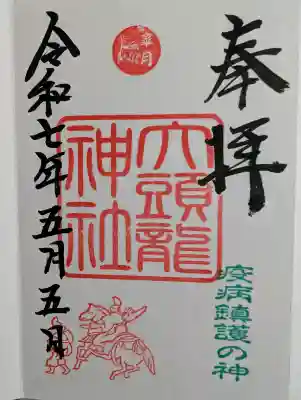 奉拝
疫病鎮護の神
六頭龍
神社
皐月
令和七年五月五日